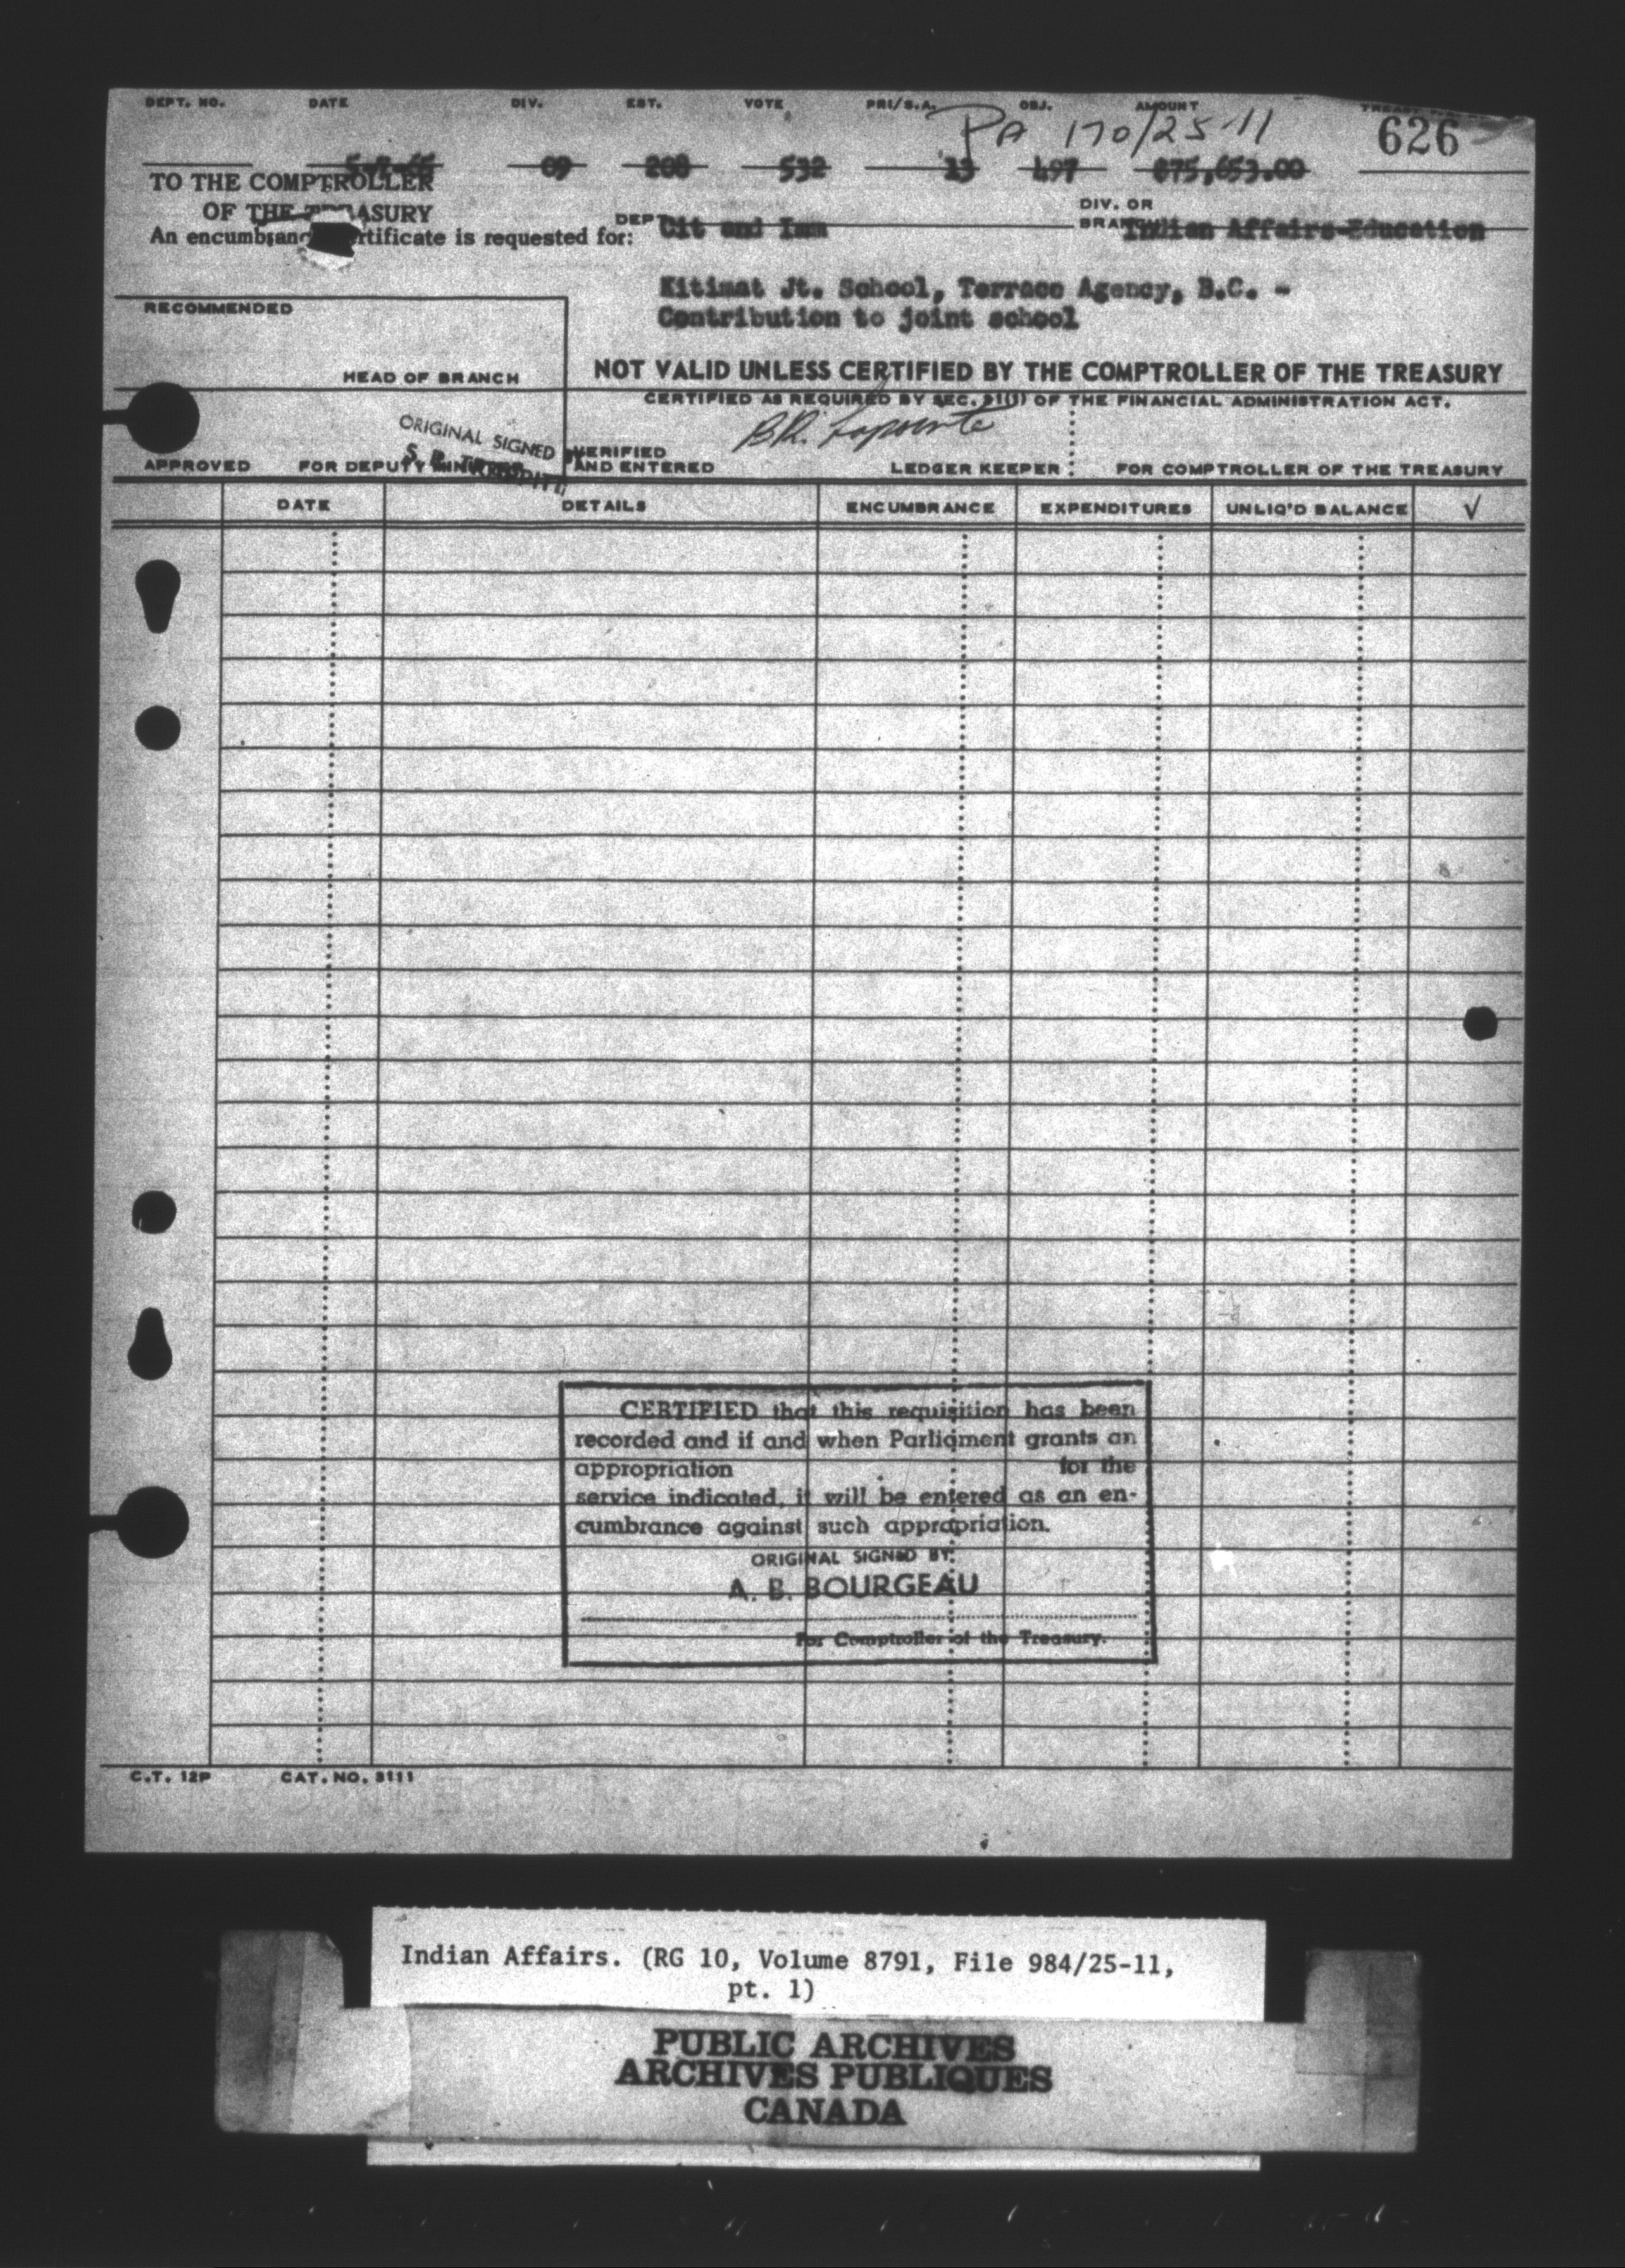 DEPT. NO. DATE DIV. EST. VOTE PRI/S.A. OBJ. AMOUNT
PA 170/25-11
626
09 208 532 13 497 $75,653.00
TO THE COMPTROLLER
OF THE TREASURY
An encumbrance certificate is requested for:
DEPT Cit and Imm
DIV. OR
BRANCH Indian Affairs-Education
Kitimat Jt. School, Terrace Agency, B.C. -
Contribution to joint school
RECOMMENDED
HEAD OF BRANCH
NOT VALID UNLESS CERTIFIED BY THE COMPTROLLER OF THE TREASURY
CERTIFIED AS REQUIRED BY SEC. 31(1) OF THE FINANCIAL ADMINISTRATION ACT.
ORIGINAL SIGNED
B.R. Lapointe
APPROVED FOR DEPUTY MINISTER
VERIFIED
AND ENTERED
LEDGER KEEPER
FOR COMPTROLLER OF THE TREASURY
DATE DETAILS ENCUMBRANCE EXPENDITURES UNLIQ'D BALANCE √
CERTIFIED that this requisition has been
recorded and if and when Parliament grants an
appropriation for the
service indicated, it will be entered as an en-
cumbrance against such appropriation.
ORIGINAL SIGNED BY:
A. B. BOURGEAU
For Comptroller of the Treasury.
C.T. 12P CAT. NO. 3111
Indian Affairs. (RG 10, Volume 8791, File 984/25-11,
pt. 1)
PUBLIC ARCHIVES
ARCHIVES PUBLIQUES
CANADA